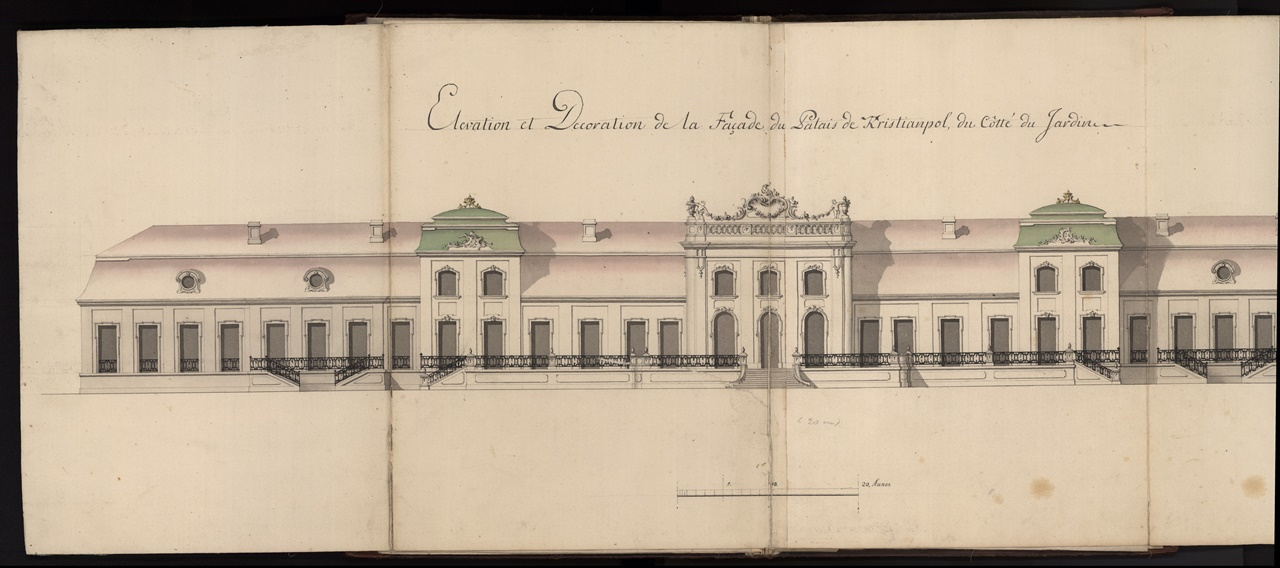 Elevation et Decoration de la Façade du Palais de Kristianpol, du Côtté du Jardin
5. 10. 20, Aunes